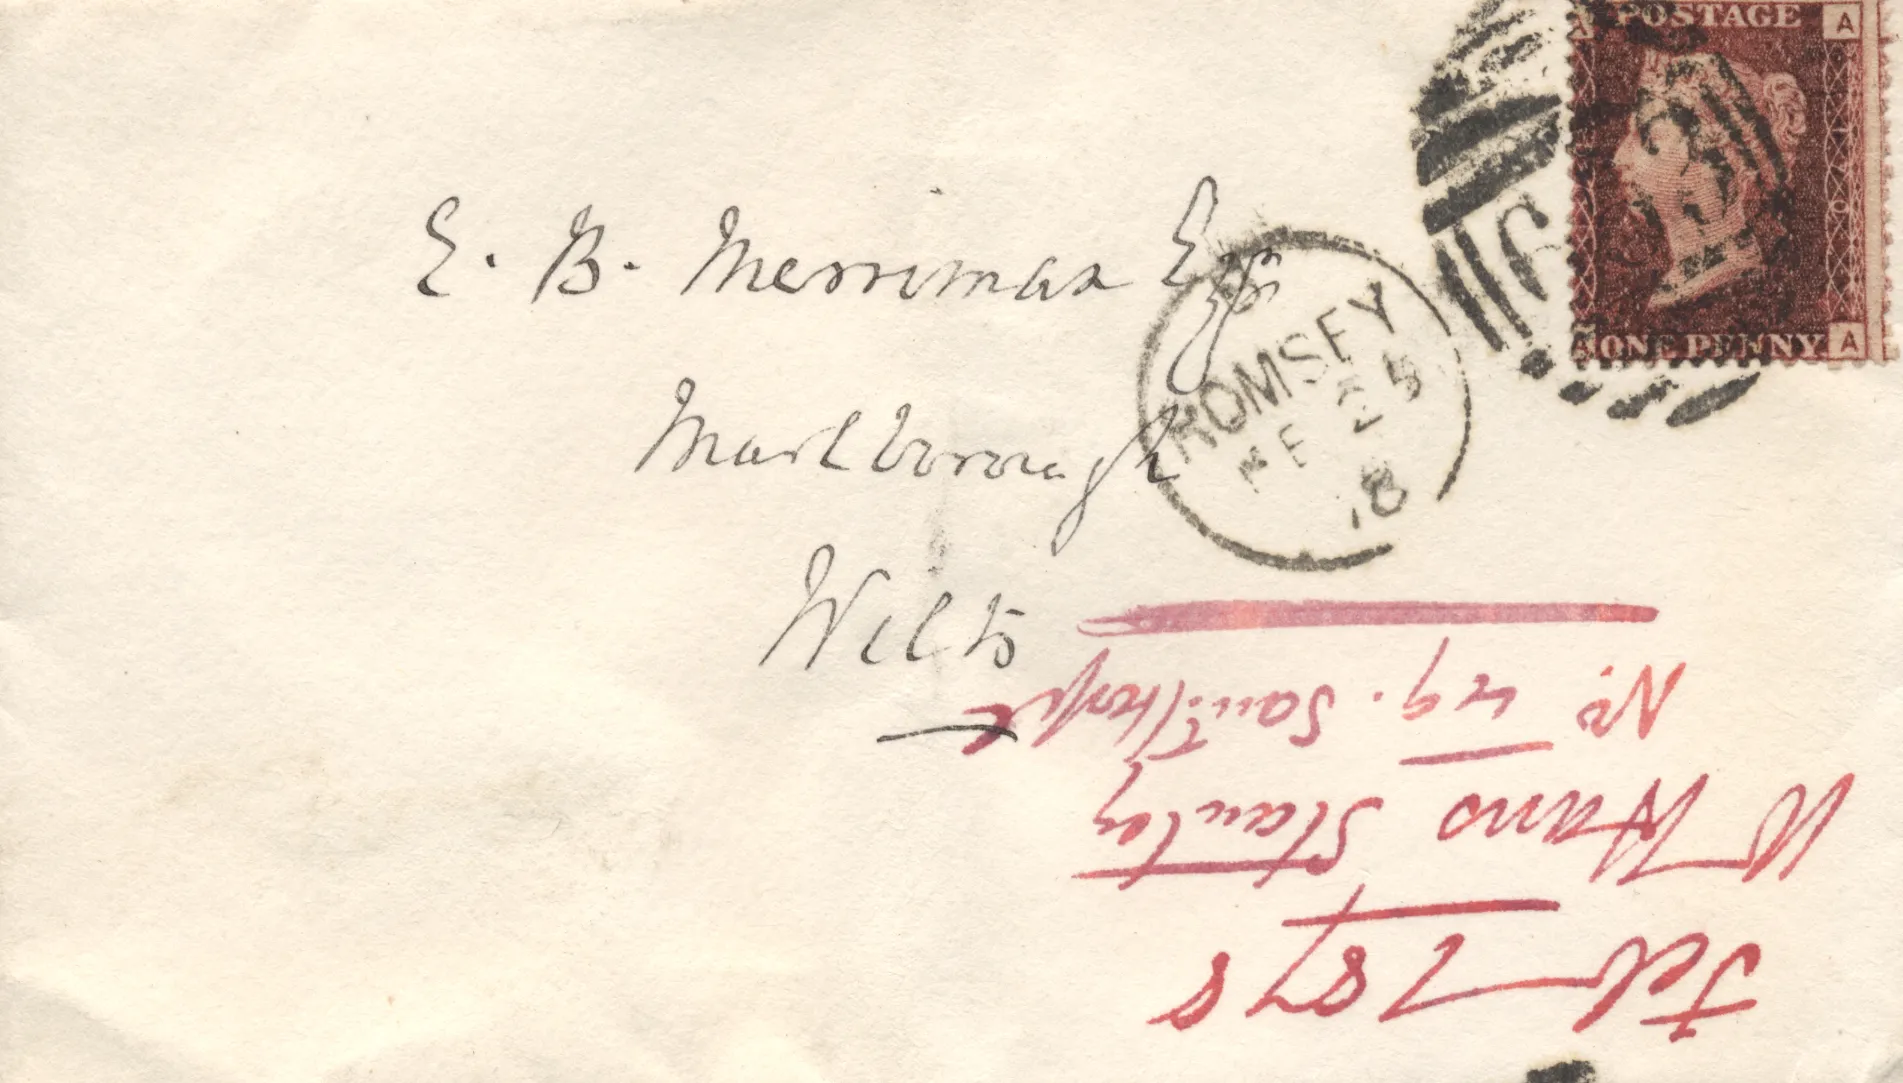 POSTAGE
A
ONE PENNY
A
E. B. Merriman Esqr
Marlborough
Wilts
ROMSEY
FE 25
78
Feb 1878
Stanley
No. 49.